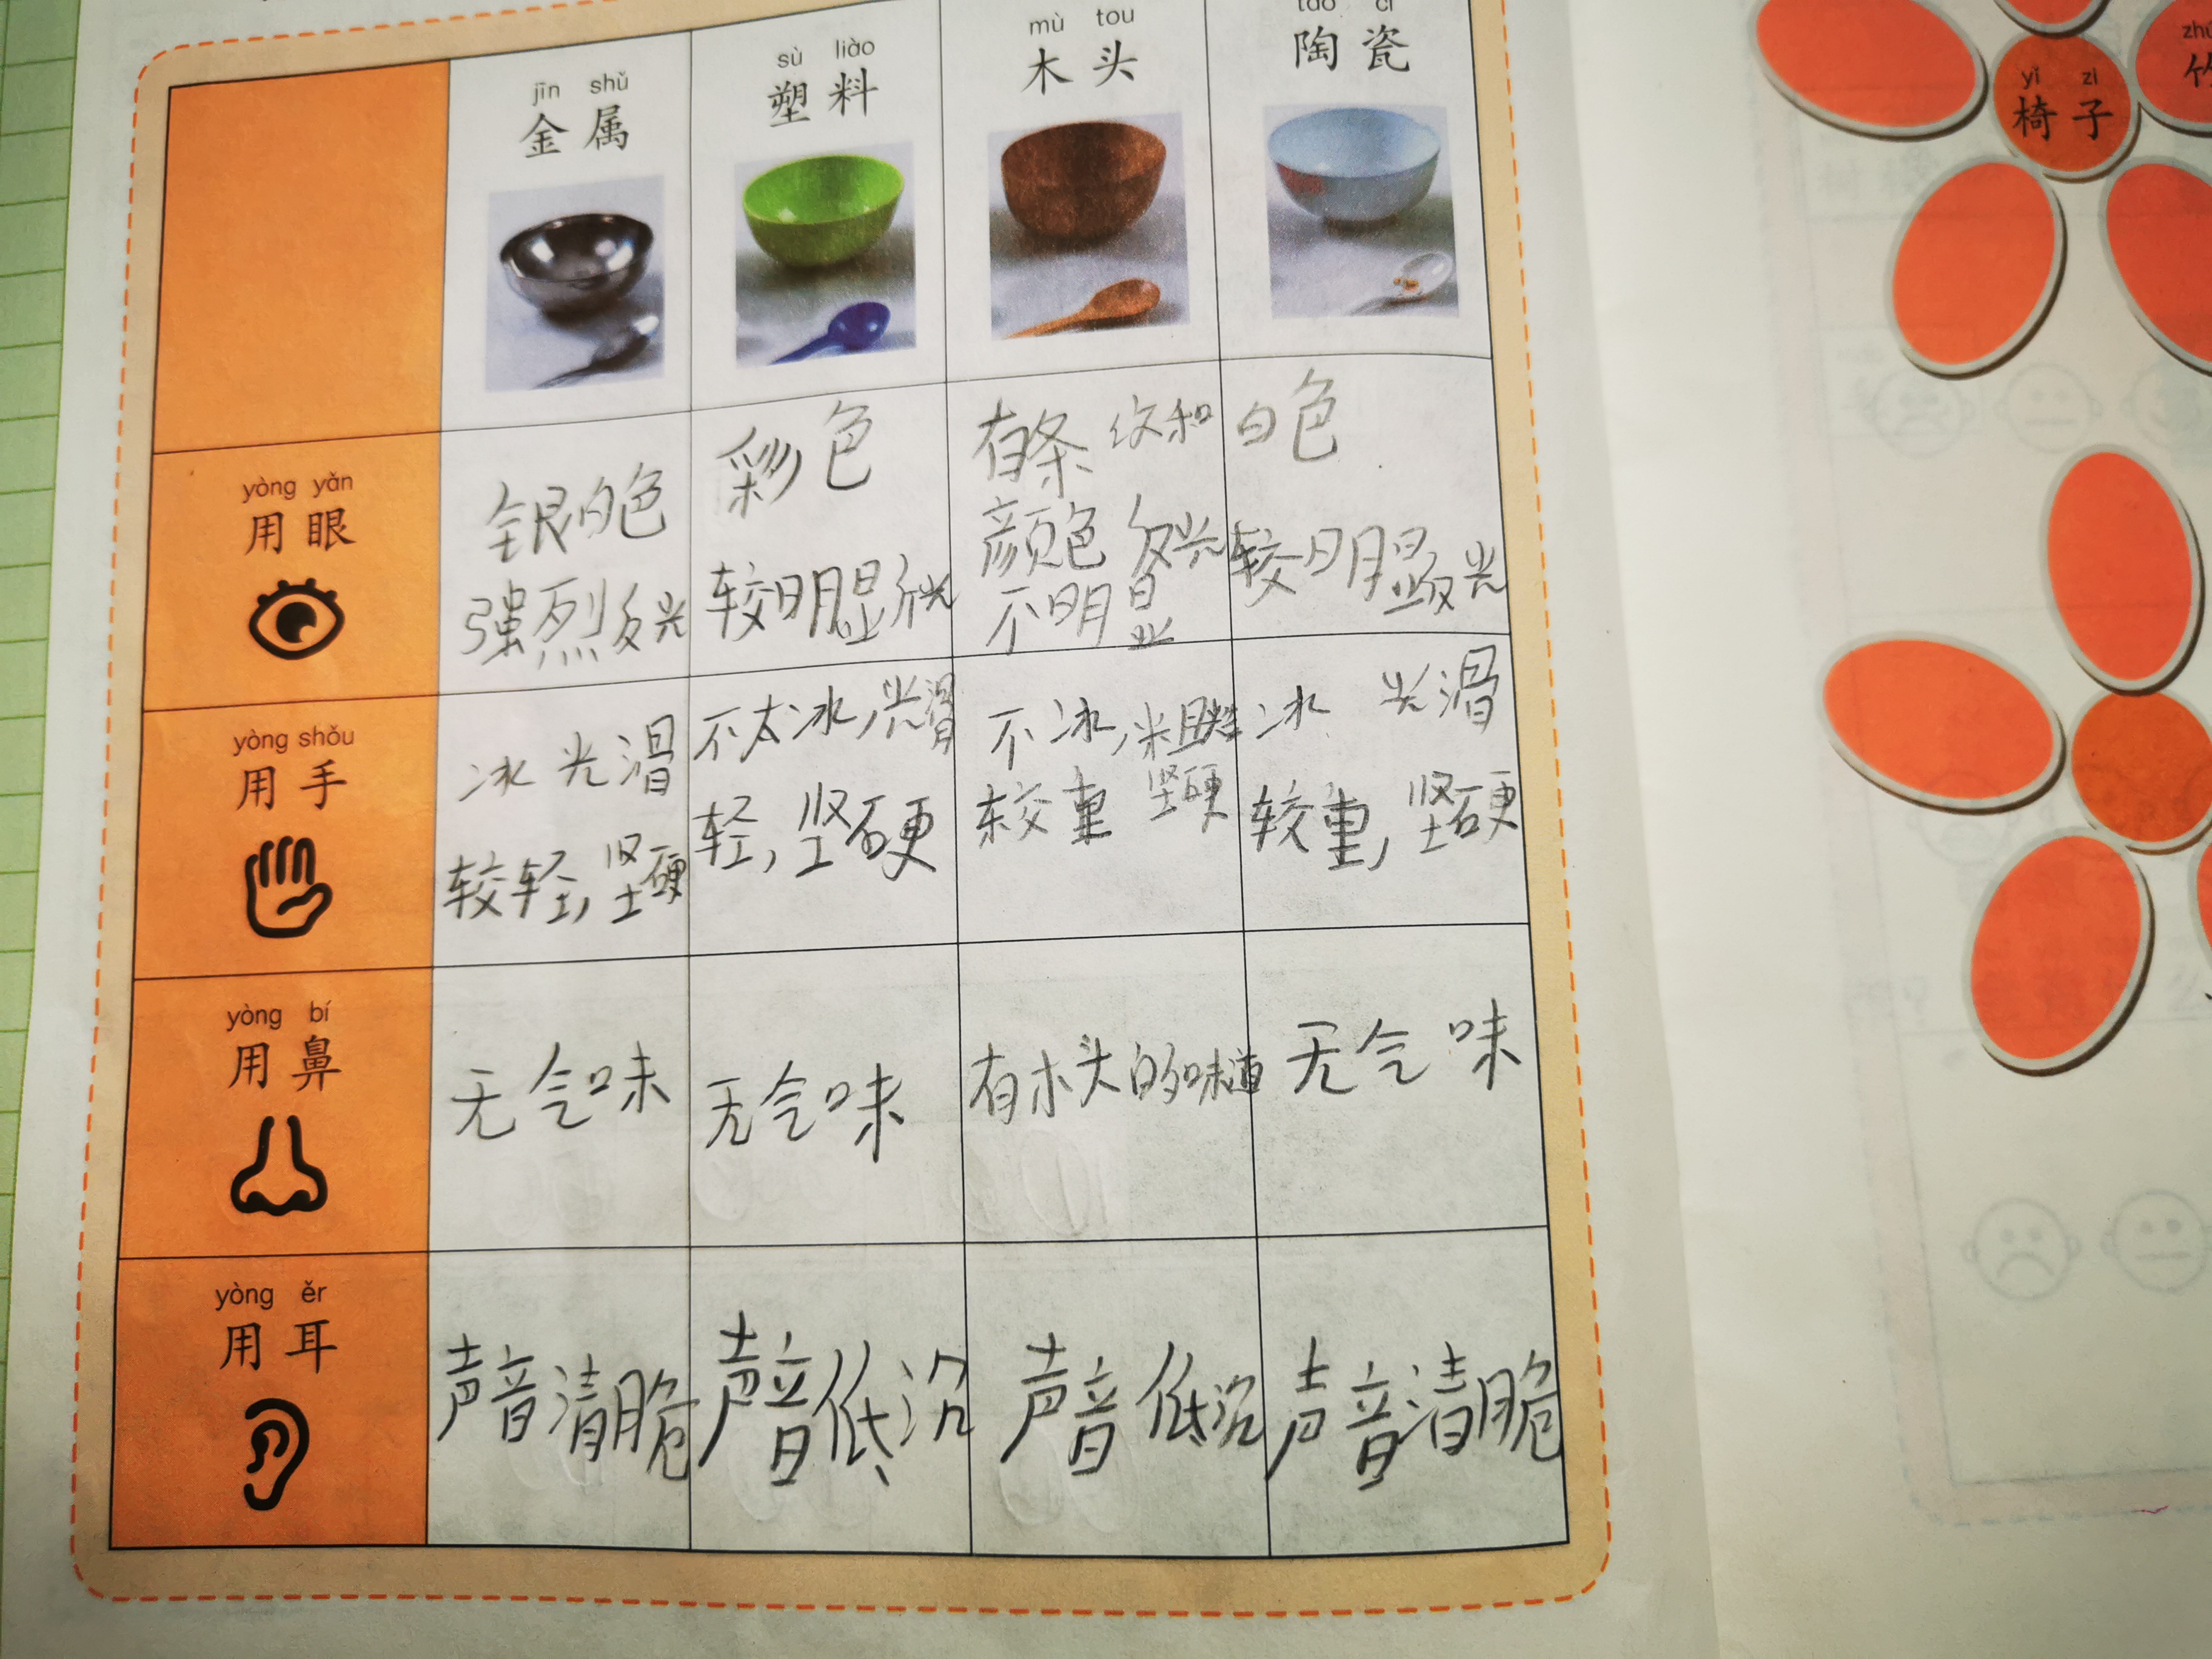 jīn shǔ
金属
sù liào
塑料
mù tou
木头
táo cí
陶瓷
yòng yǎn
用眼
银白色
强烈反光
彩色
较明显反光
有条纹和
颜色 反光
不明显
白色
较明显反光
yòng shǒu
用手
冰 光滑
较轻,坚硬
不太冰,光滑
轻,坚硬
不冰,粗糙
较重 坚硬
冰 光滑
较重,坚硬
yòng bí
用鼻
无气味
无气味
有木头的味道
无气味
yòng ěr
用耳
声音清脆
声音低沉
声音低沉
声音清脆
yǐ zi
椅子